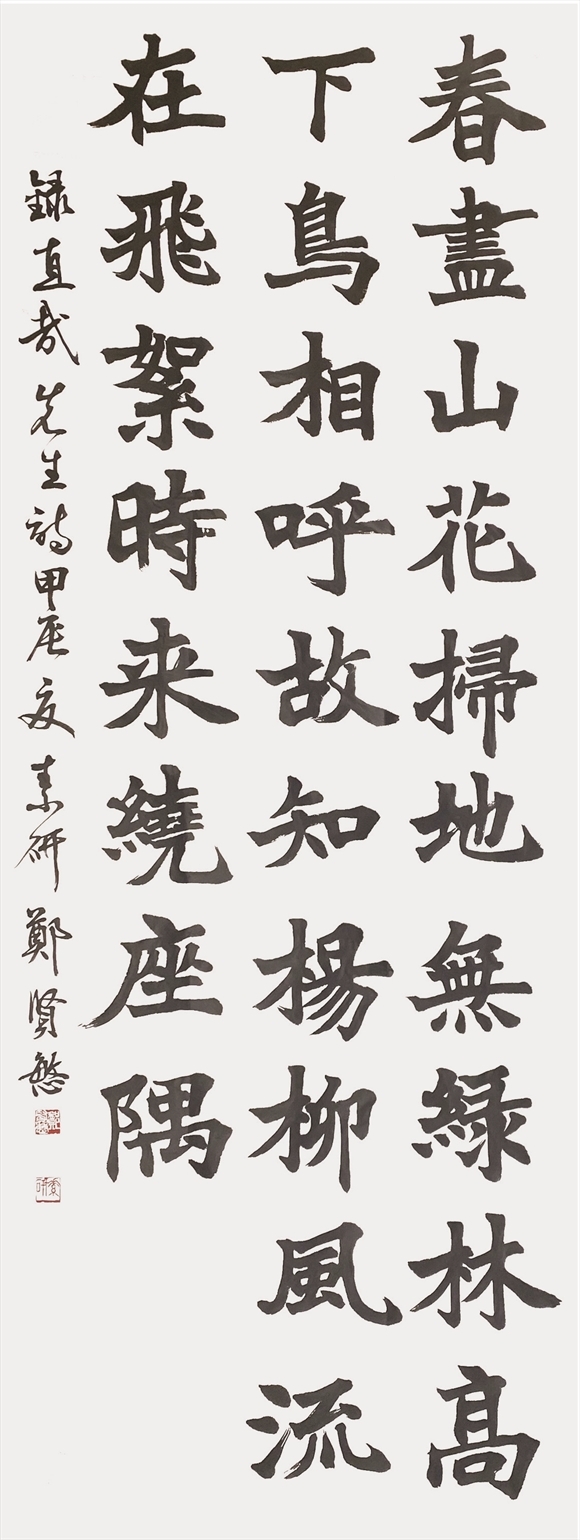 春盡山花掃地無緑林髙
下鳥相呼故知楊柳風流
在飛絮時来繞座隅
録直哉先生詩甲辰夏素研鄭賢愍